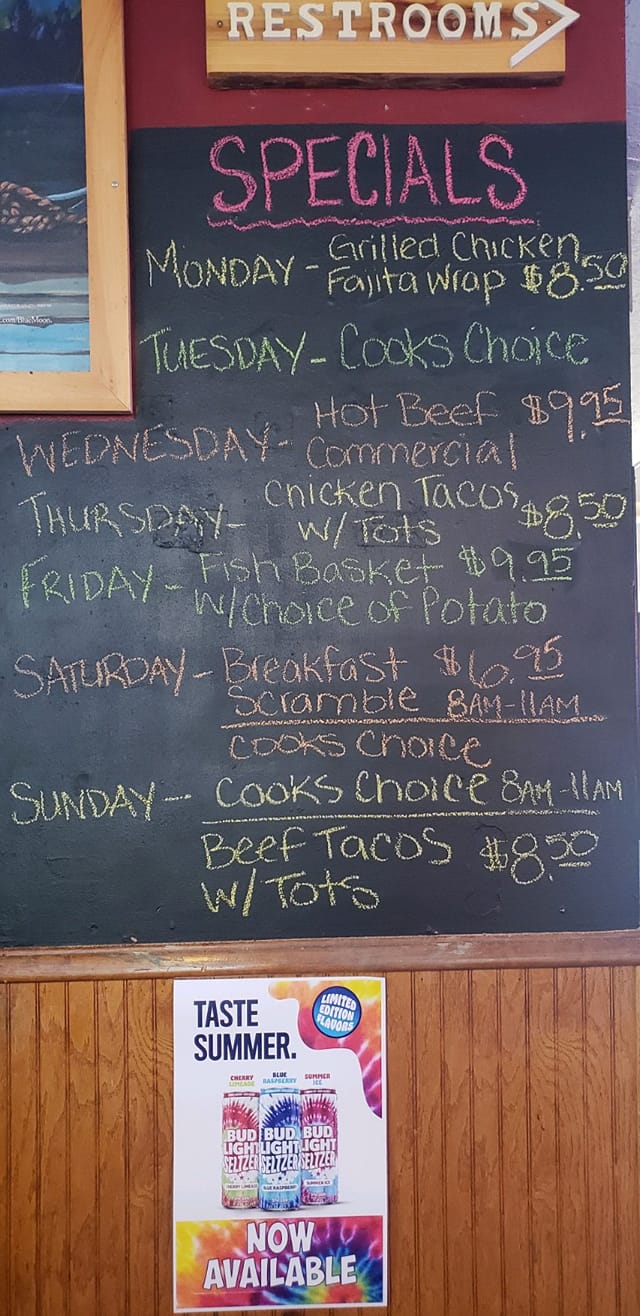 RESTROOMS
SPECIALS
MONDAY - Grilled Chicken
Fajita Wrap $8.50
TUESDAY - Cooks Choice
Hot Beef $9.95
WEDNESDAY - Commercial
Chicken Tacos $8.50
THURSDAY - W/ Tots
FRIDAY - Fish Basket $9.95
W/Choice of Potato
SATURDAY - Breakfast $6.95
Scramble 8AM-11AM
Cooks Choice
SUNDAY - Cooks Choice 8AM-11AM
Beef Tacos $8.50
W/ Tots
.com/BlueMoon.
TASTE
SUMMER.
LIMITED
EDITION
FLAVORS
CHERRY
LIMEADE
BLUE
RASPBERRY
SUMMER
ICE
BUD
LIGHT
SELTZER
CHERRY LIMEADE
BUD
LIGHT
SELTZER
BLUE RASPBERRY
BUD
LIGHT
SELTZER
SUMMER ICE
NOW
AVAILABLE